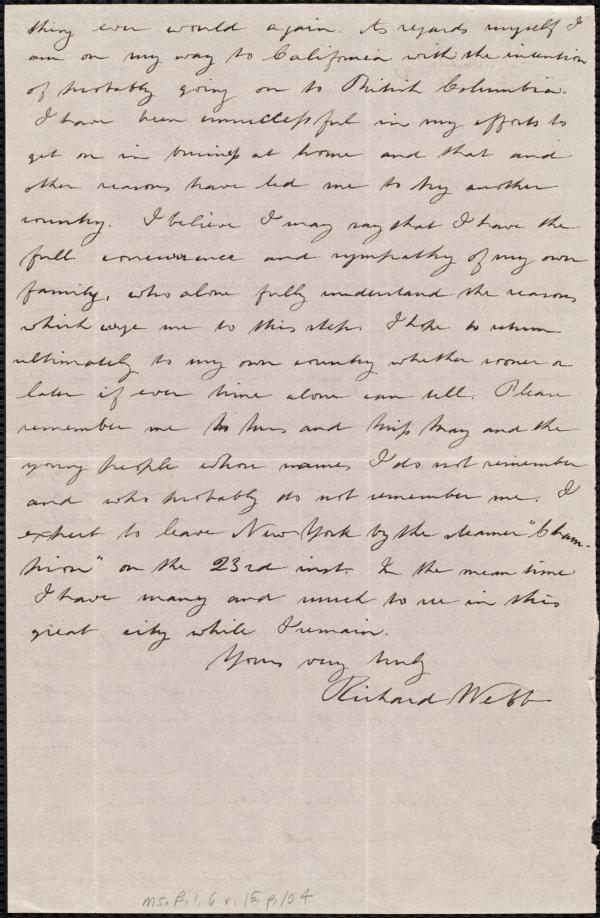 thing ever would again. As regards myself I
am on my way to California with the intention
of probably going on to British Columbia.
I have been unsuccessful in my efforts to
get on in business at home and that and
other reasons have led me to try another
country. I believe I may say that I have the
full concurrence and sympathy of my own
family, who alone fully understand the reasons
which urge me to this step. I hope to return
ultimately to my own country whether sooner or
later if ever time alone can tell. Please
remember me to Mrs and Miss May and the
young people whose names I do not remember
and who probably do not remember me. I
expect to leave New York by the steamer "Cham-
pion" on the 23rd inst. In the mean time
I have many and much to see in this
great city while I remain.
Yours very truly
Richard Webb
Ms. B. 1. 6 v. 15, p. 104